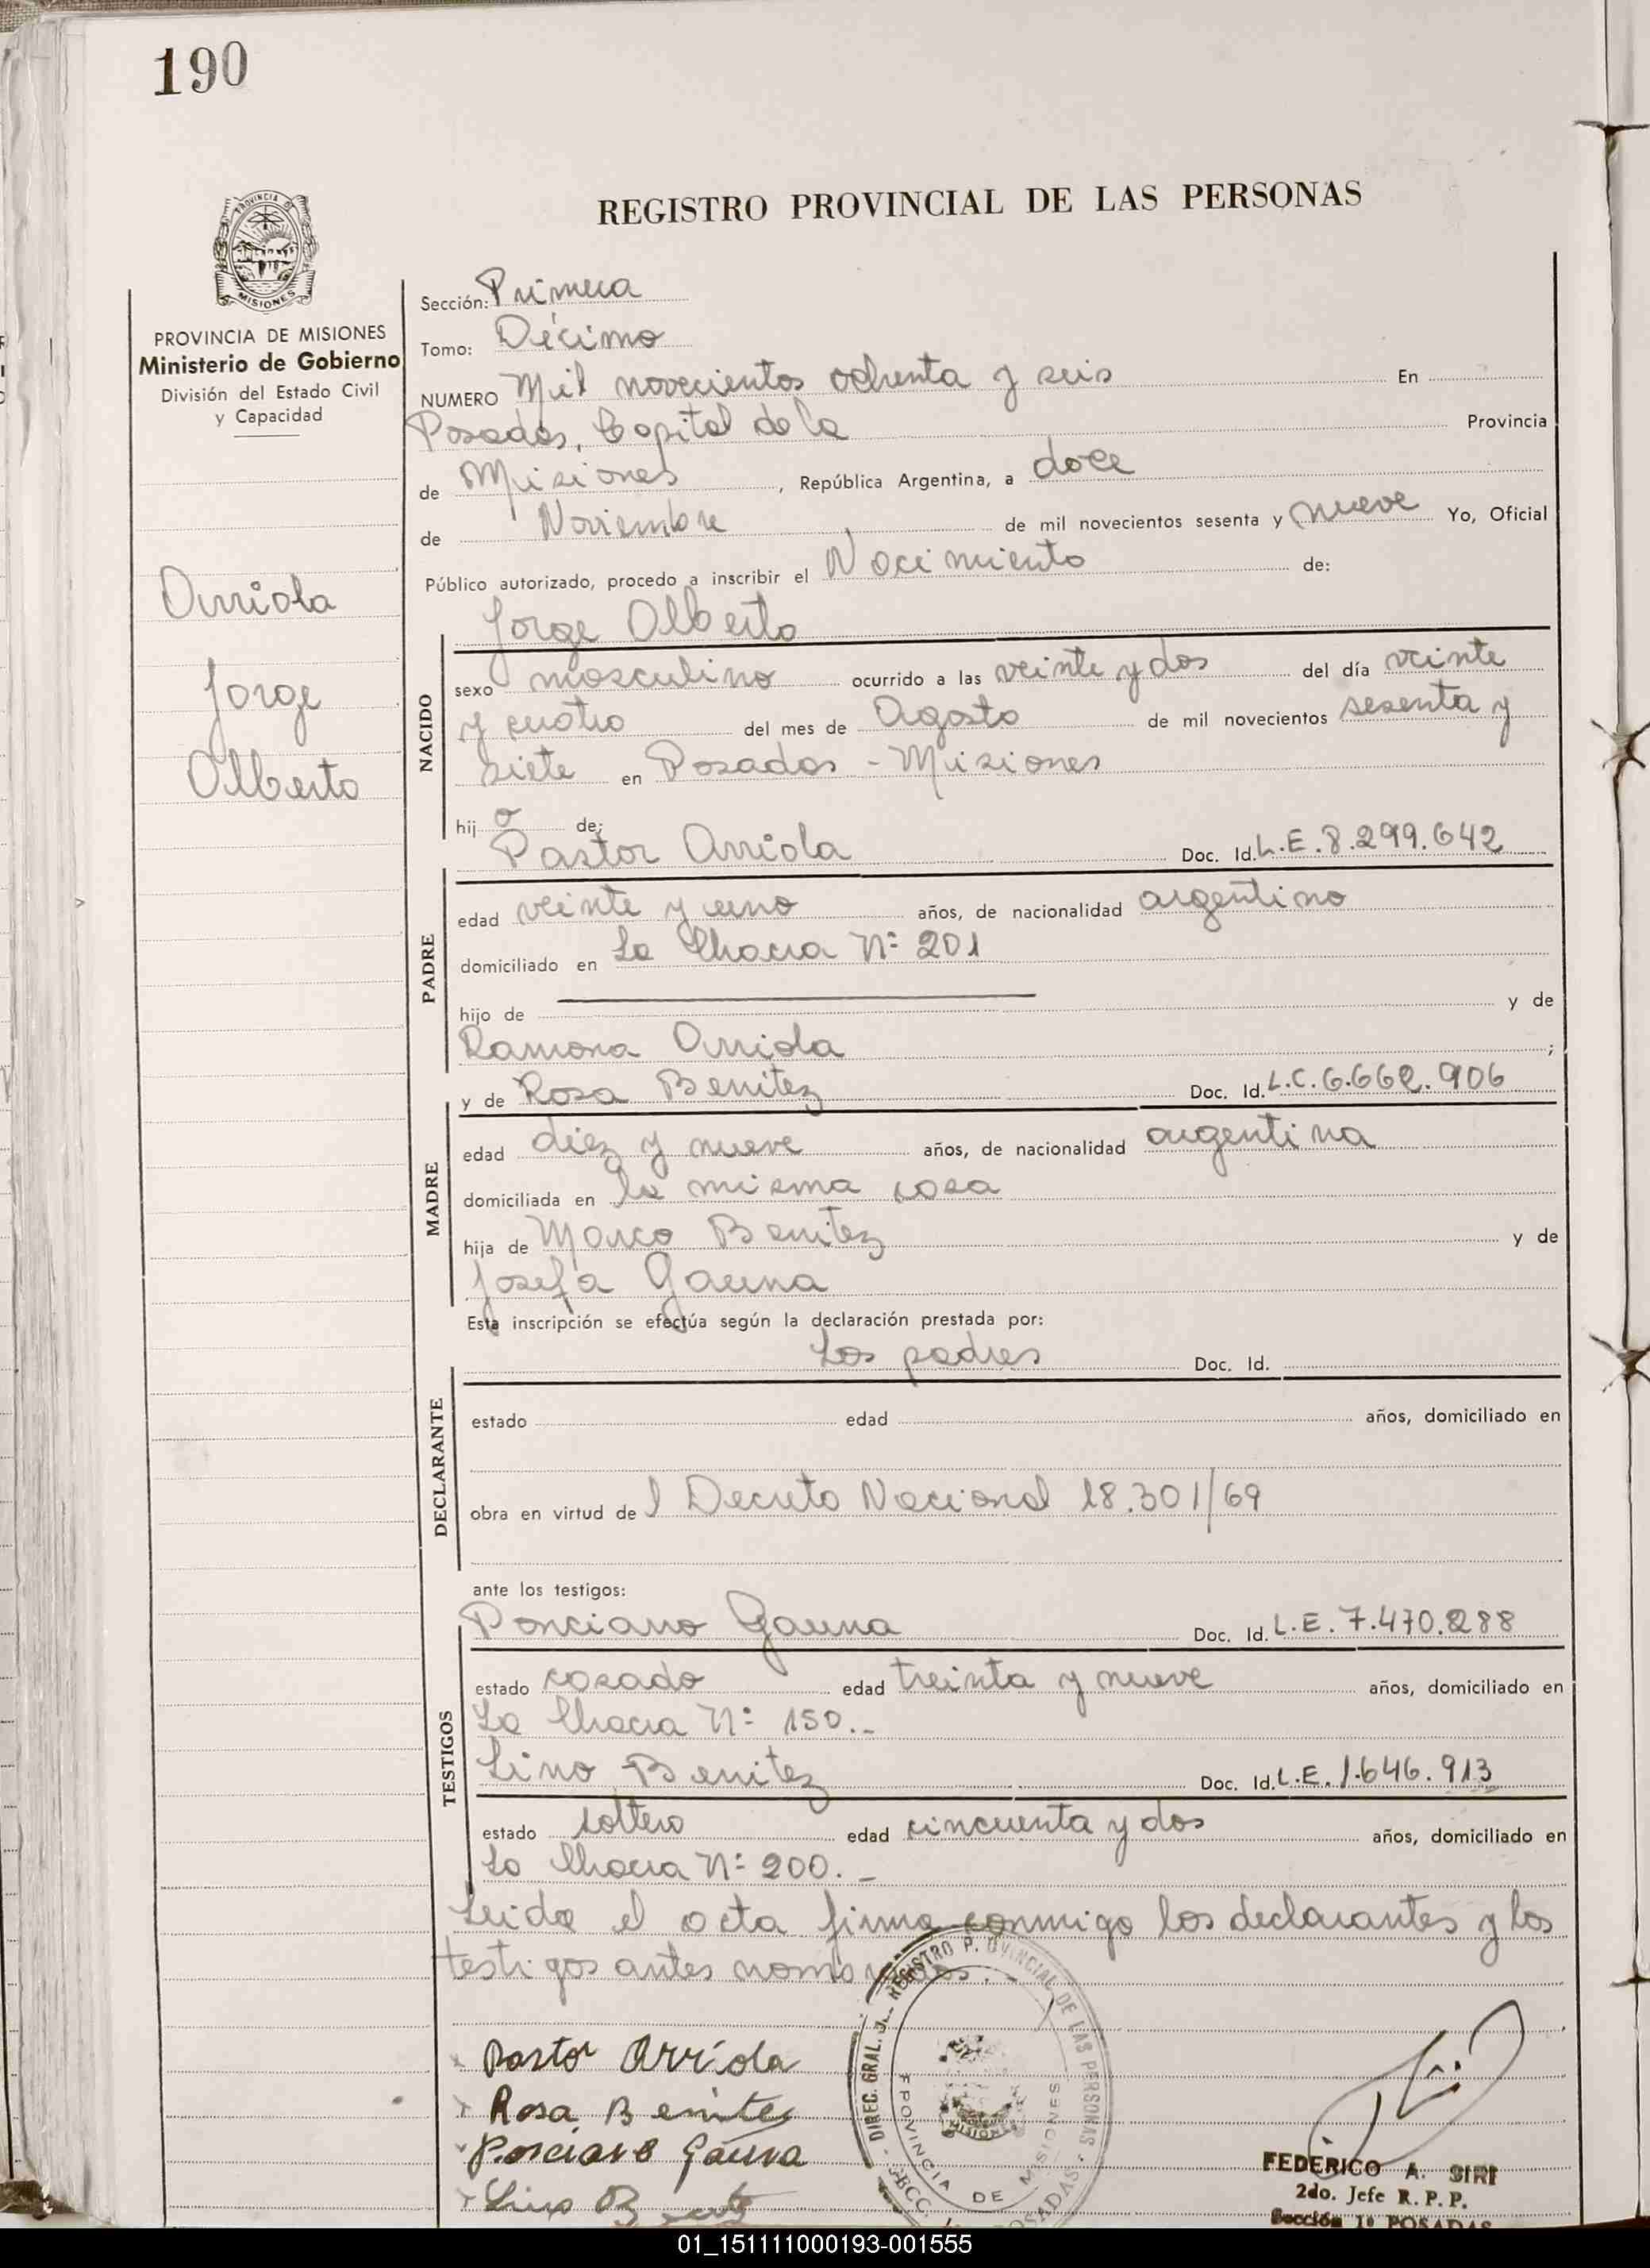 190
REGISTRO PROVINCIAL DE LAS PERSONAS
PROVINCIA DE MISIONES
Ministerio de Gobierno
División del Estado Civil
y Capacidad
Arriola
Jorge
Alberto
Sección: Primera
Tomo: Décimo
NUMERO Mil novecientos ochenta y seis En
Posadas, Capital de la Provincia
de Misiones, República Argentina, a doce
de Noviembre de mil novecientos sesenta y nueve Yo, Oficial
Público autorizado, procedo a inscribir el Nacimiento de:
Jorge Alberto
NACIDO
sexo masculino ocurrido a las veinte y dos del día veinte
y cuatro del mes de Agosto de mil novecientos sesenta y
siete en Posadas - Misiones
hijo de;
Pastor Arriola Doc. Id. L.E. 8.299.642
PADRE
edad veinte y uno años, de nacionalidad argentino
domiciliado en La Chacra Nº 201
hijo de y de
Ramona Arriola ;
y de Rosa Benitez Doc. Id. L.C. 6.662.906
MADRE
edad diez y nueve años, de nacionalidad argentina
domiciliada en la misma casa
hija de Marco Benitez y de
Josefa Gauna
Esta inscripción se efectúa según la declaración prestada por:
Los padres Doc. Id.
DECLARANTE
estado edad años, domiciliado en
obra en virtud de l Decreto Nacional 18.301/69
ante los testigos:
Ponciano Gauna Doc. Id. L.E. 7.470.288
TESTIGOS
estado casado edad treinta y nueve años, domiciliado en
La Chacra Nº 150.-
Lino Benitez Doc. Id. L.E. 1.646.913
estado soltero edad cincuenta y dos años, domiciliado en
La Chacra Nº 200.-
Leida el acta firma conmigo los declarantes y los
testigos antes nombrados.-
Pastor Arriola
Rosa Benites
Ponciano Gauna
Lino
DIREC. GRAL. REGISTRO PROVINCIAL DE LAS PERSONAS
PROVINCIA DE MISIONES
MISIONES
POSADAS
FEDERICO A. SIRI
2do. Jefe R. P. P.
Sección 1ª POSADAS
01_151111000193-001555